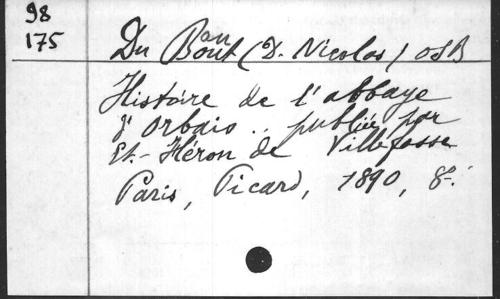 98
175
Du Bout (D. Nicolas) OSB
Histoire de l'abbaye
d'Orbais .. publiée par
Et.- Héron de Villefosse
Paris, Picard, 1890, 8º.